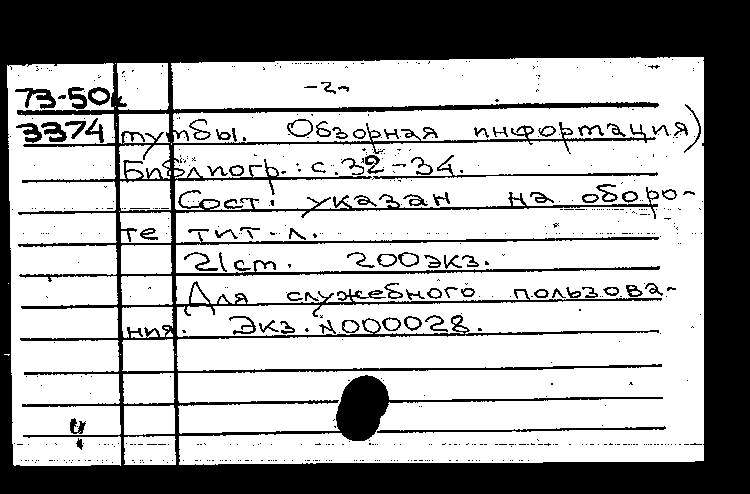 -2-
73-50к
3374 тутбы. Обзорная информация)
Библиогр.: с. 32-34.
Сост. указан на оборо-
те тит. л.
21 ст. 200 экз.
Для служебного пользова-
ния. Экз. №000028.